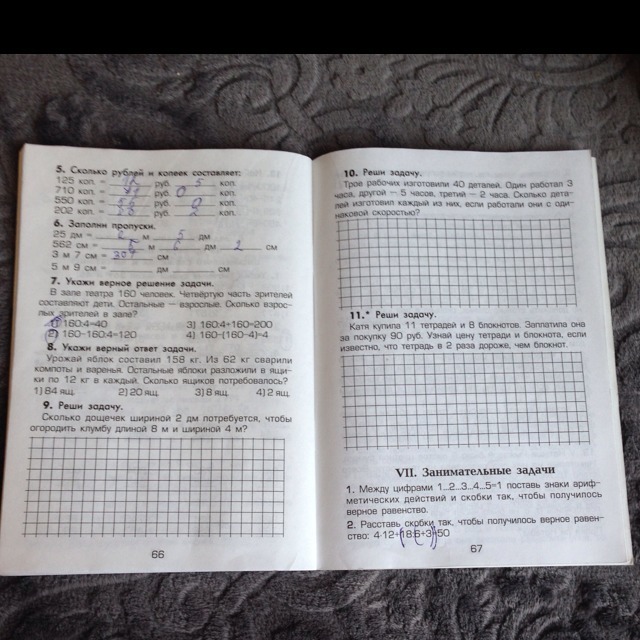 5. Сколько рублей и копеек составляет:
125 коп. = руб. 5 коп.
710 коп. = руб. 0 коп.
550 коп. = руб. 0 коп.
202 коп. = руб. 2 коп.
6. Заполни пропуски.
25 дм = 2 м 5 дм
562 см = 5 м 6 дм 2 см
3 м 7 см = 307 см
5 м 9 см = дм см
7. Укажи верное решение задачи.
В зале театра 160 человек. Четвёртую часть зрителей
составляют дети. Остальные — взрослые. Сколько взрос-
лых зрителей в зале?
1) 160:4=40 3) 160:4+160=200
2) 160-160:4=120 4) 160-(160-4)=4
8. Укажи верный ответ задачи.
Урожай яблок составил 158 кг. Из 62 кг сварили
компоты и варенья. Остальные яблоки разложили в ящи-
ки по 12 кг в каждый. Сколько ящиков потребовалось?
1) 84 ящ. 2) 20 ящ. 3) 8 ящ. 4) 2 ящ.
9. Реши задачу.
Сколько дощечек шириной 2 дм потребуется, чтобы
огородить клумбу длиной 8 м и шириной 4 м?
66
10. Реши задачу.
Трое рабочих изготовили 40 деталей. Один работал 3
часа, другой — 5 часов, третий — 2 часа. Сколько дета-
лей изготовил каждый из них, если работали они с оди-
наковой скоростью?
11.* Реши задачу.
Катя купила 11 тетрадей и 8 блокнотов. Заплатила она
за покупку 90 руб. Узнай цену тетради и блокнота, если
известно, что тетрадь в 2 раза дороже, чем блокнот.
VII. Занимательные задачи
1. Между цифрами 1...2...3...4...5=1 поставь знаки ариф-
метических действий и скобки так, чтобы получилось
верное равенство.
2. Расставь скобки так, чтобы получилось верное равен-
ство: 4·12+(18:6+3)=50
67